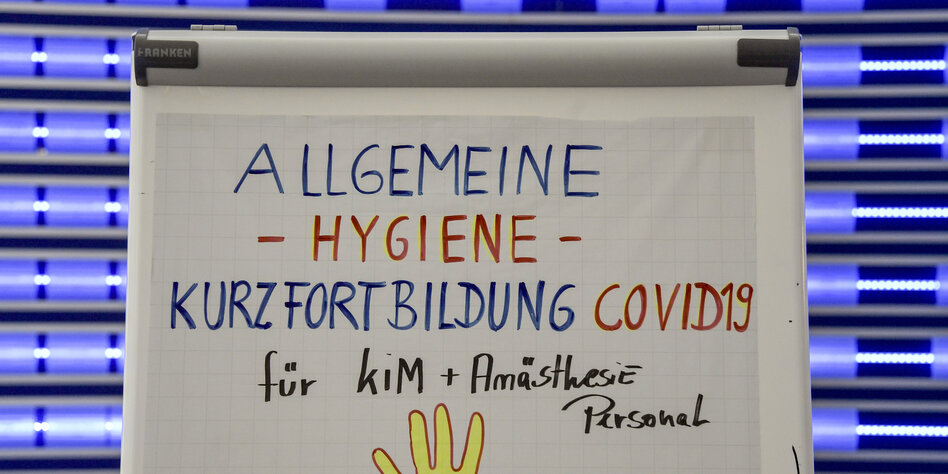 FRANKEN
ALLGEMEINE
- HYGIENE -
KURZFORTBILDUNG COVID19
für KiM + Anästhesie
Personal